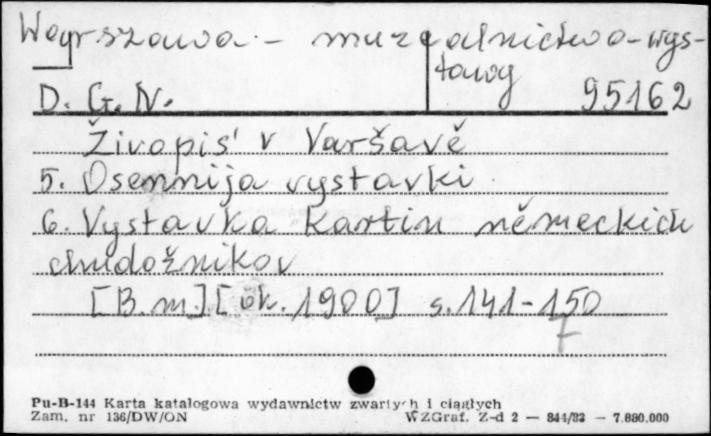 Warszawa - muzealnictwo - wys-
tawy
D. G. N. 95162
Živopis' v Varšavě
5. Osennija vystavki
6. Vystavka kartin německich
chudožnikov
[B. m] [ok. 1900] s. 141-150
7
Pu-B-144 Karta katalogowa wydawnictw zwartych i ciągłych
Zam. nr 136/DW/ON WZGraf. Z-d 2 — 844/83 — 7.880.000